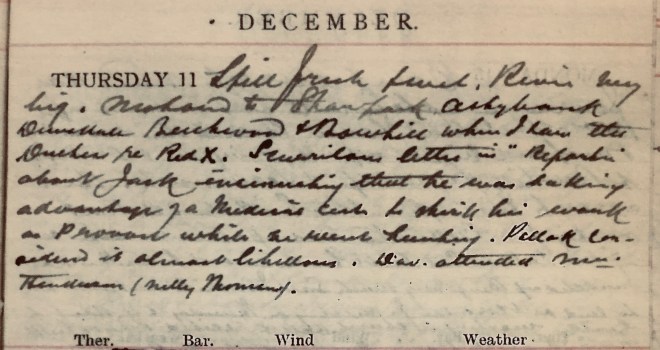 DECEMBER.
THURSDAY 11 Still fresh. River very
big. Motored to Shawpark Ashybank
Dunsdale Beechwood & Bowhill when I saw the
Duchess re Red X. Scurrilous letter in "Reporter
about Jack insinuating that he was taking
advantage of a Medical cert. to shirk his work
as Provost while he went hunting. Pollok con-
siders it almost libellous. Dav. attended Mrs
Henderson (Nelly Thomson).
Ther. Bar. Wind Weather